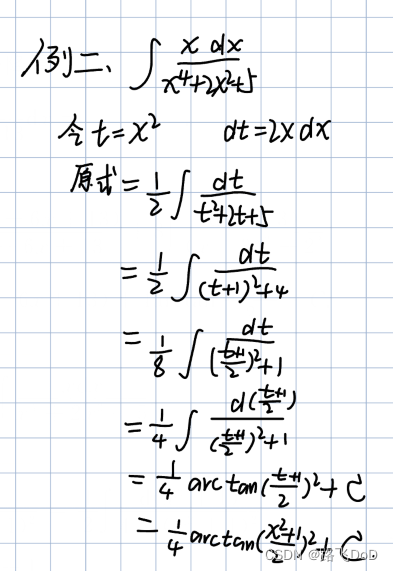 例二、∫ x dx / x⁴+2x²+5
令 t=x² dt=2x dx
原式 = 1/2 ∫ dt / t²+2t+5
= 1/2 ∫ dt / (t+1)²+4
= 1/8 ∫ dt / (t+1/2)²+1
= 1/4 ∫ d(t+1/2) / (t+1/2)²+1
= 1/4 arctan(t+1/2)²+C
= 1/4 arctan(x²+1/2)²+C.
CSDN @路飞DoD